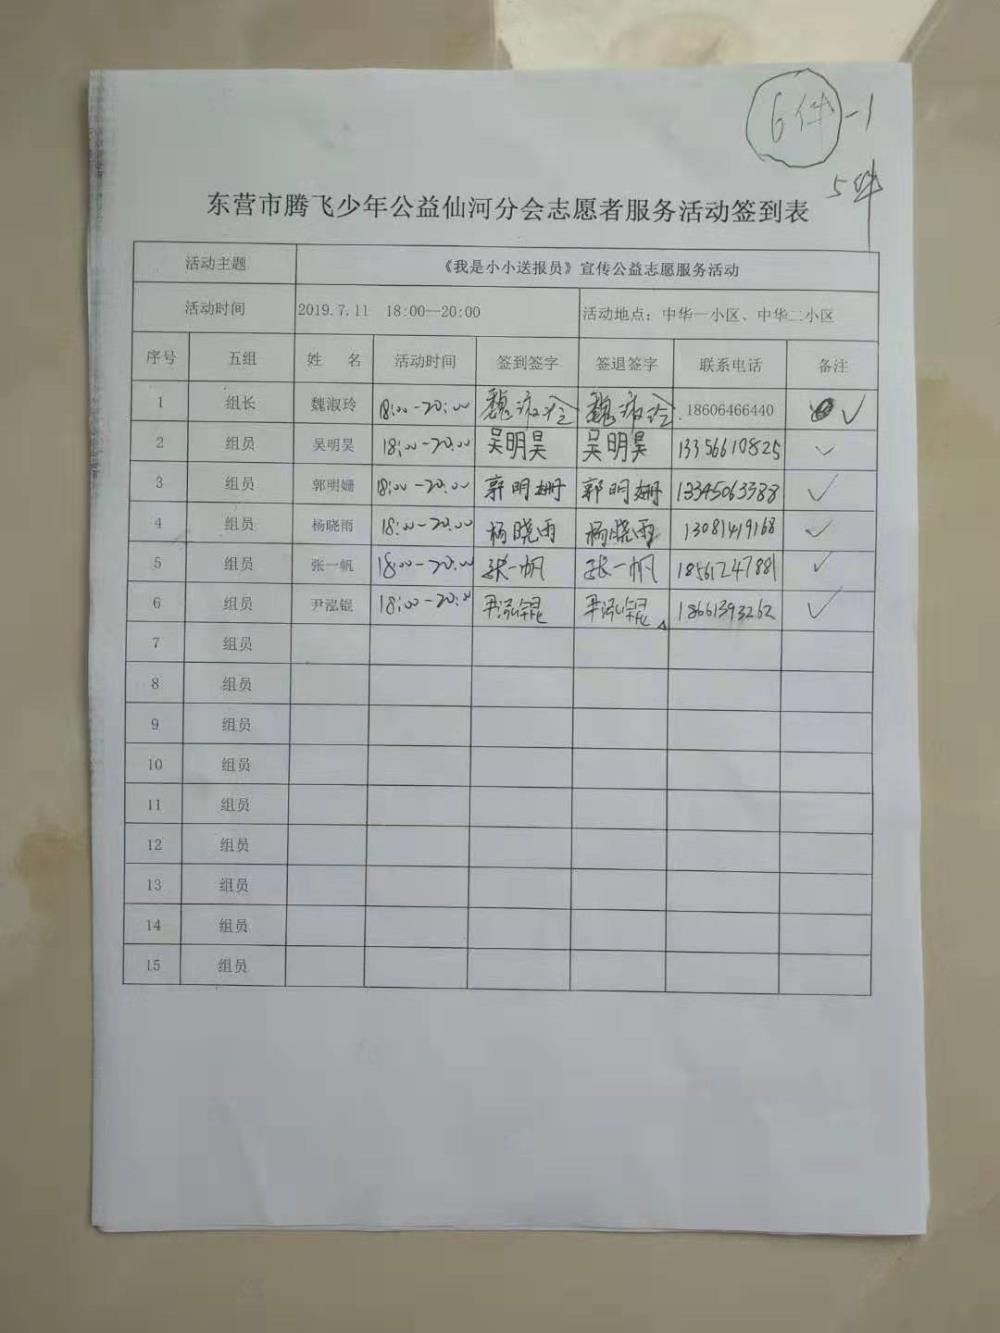 6件-1
5件
东营市腾飞少年公益仙河分会志愿者服务活动签到表
活动主题 《我是小小送报员》宣传公益志愿服务活动
活动时间 2019.7.11 18:00—20:00 活动地点：中华一小区、中华二小区
序号 五组 姓 名 活动时间 签到签字 签退签字 联系电话 备注
1 组长 魏淑玲 18:00-20:00 魏淑玲 魏淑玲 18606466440 ✓
2 组员 吴明昊 18:00-20:00 吴明昊 吴明昊 13356610825 ✓
3 组员 郭明姗 18:00-20:00 郭明姗 郭明姗 13345063388 ✓
4 组员 杨晓雨 18:00-20:00 杨晓雨 杨晓雨 13081419168 ✓
5 组员 张一帆 18:00-20:00 张一帆 张一帆 18561247881 ✓
6 组员 尹泓锟 18:00-20:00 尹泓锟 尹泓锟 18661393262 ✓
7 组员
8 组员
9 组员
10 组员
11 组员
12 组员
13 组员
14 组员
15 组员